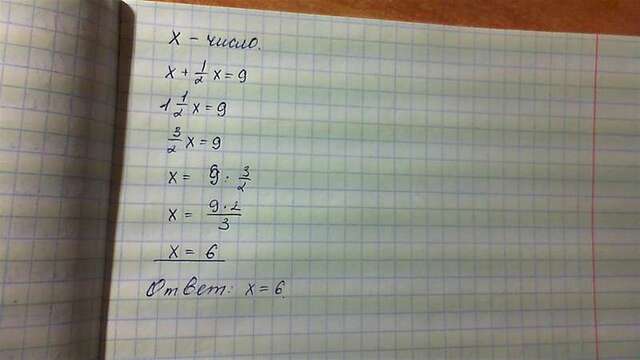 x - число.
x + 1/2 x = 9
1 1/2 x = 9
3/2 x = 9
x = 9 : 3/2
x = 9 · 2/3
x = 6
Ответ: x = 6.